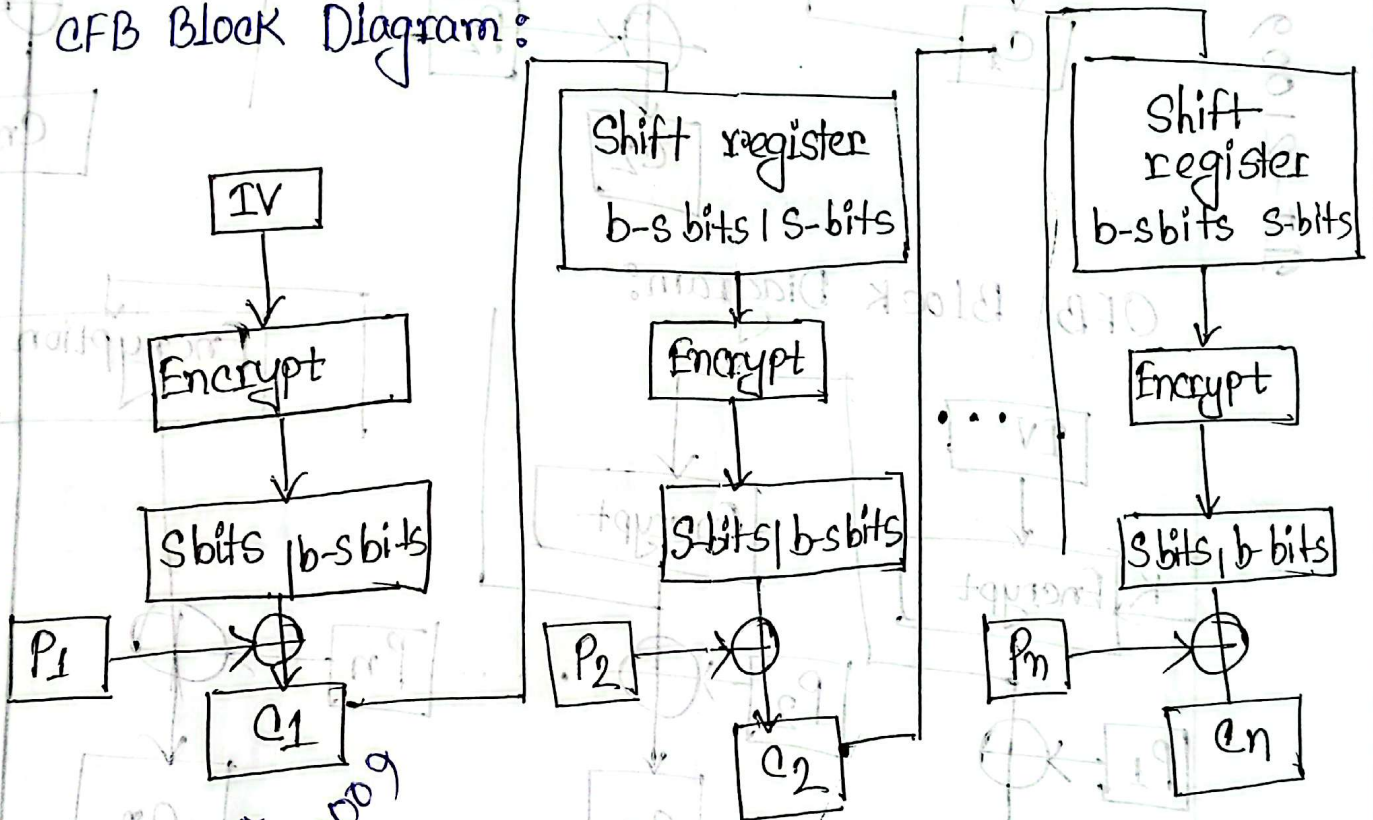 CFB Block Diagram:
IV
Encrypt
Sbits | b-s bits
P1
C1
Shift register
b-s bits | S-bits
Encrypt
S-bits | b-sbits
P2
C2
...
Shift
register
b-sbits S-bits
Encrypt
S bits | b-bits
Pn
Cn
009